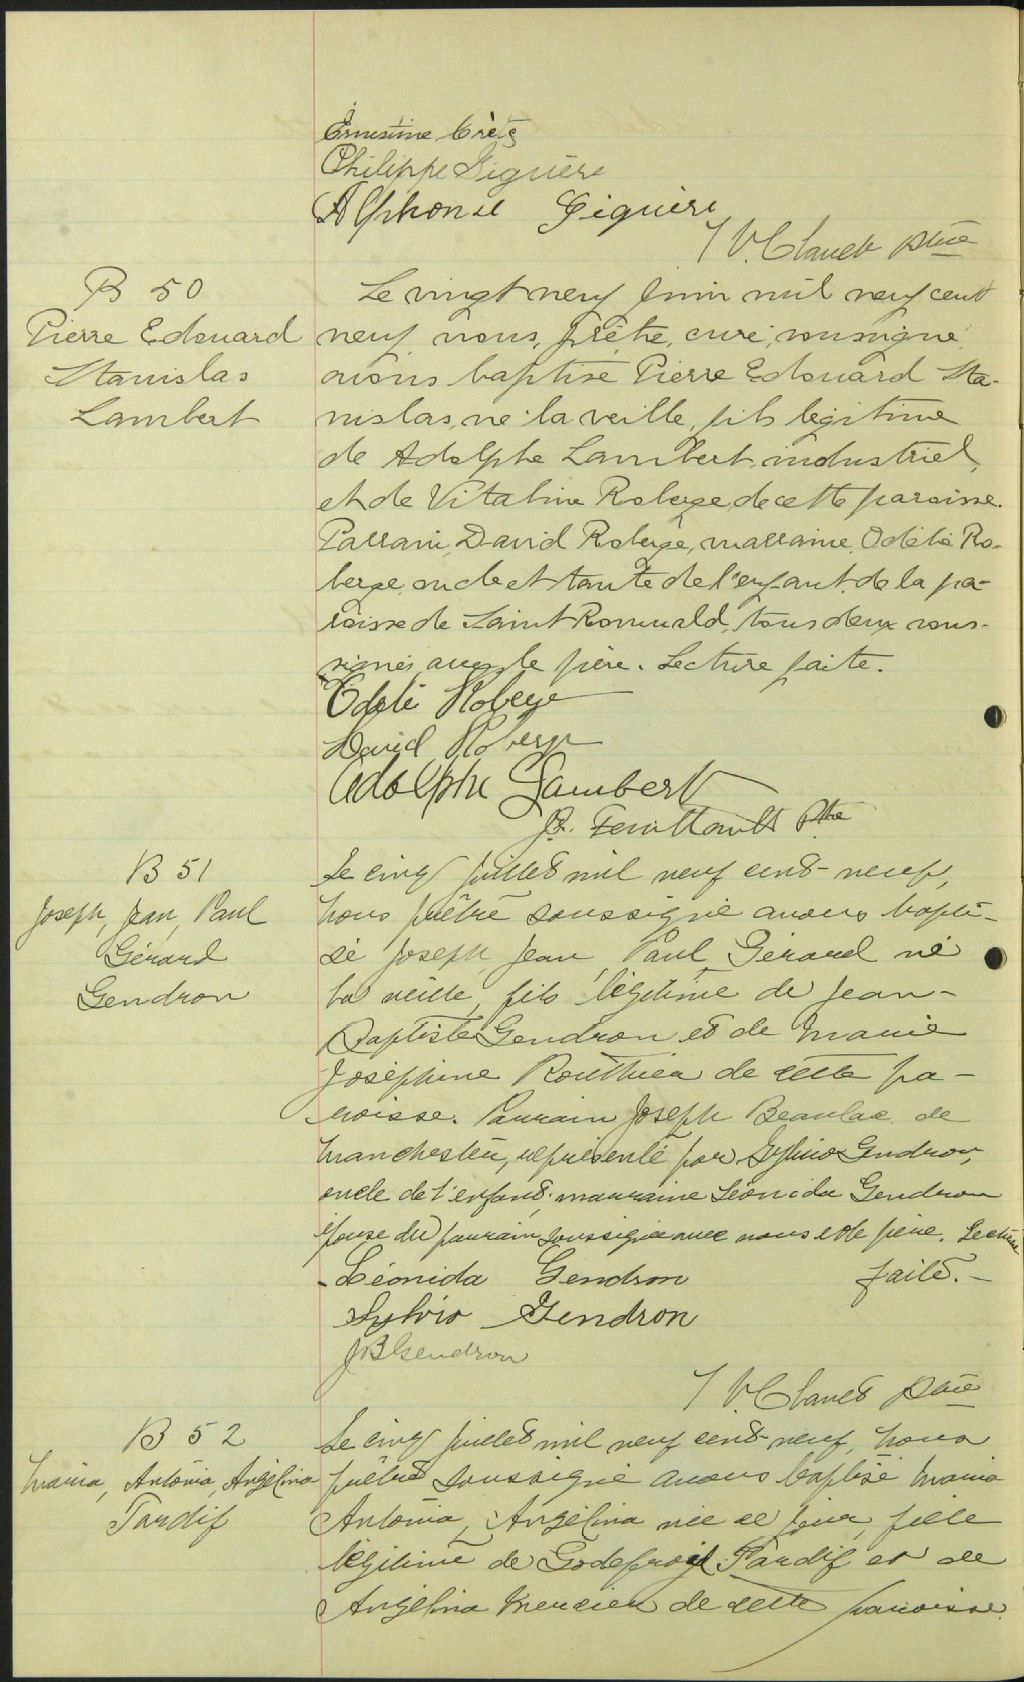 Ernestine Crête
Philippe Giguère
Alphonse Giguère
J V. Ptre
B 50
Pierre Edouard
Stanislas
Lambert
Le vingt neuf juin mil neuf cent
neuf, nous, prêtre, curé, soussigné,
avons baptisé Pierre Edouard Sta-
nislas, né la veille, fils légitime
de Adolphe Lambert, industriel,
et de Vitaline Roberge, de cette paroisse.
Parrain, David Roberge, marraine, Odélie Ro-
berge, oncle et tante de l'enfant, de la pa-
roisse de Saint Romuald, tous deux sous-
signés avec le père. Lecture faite.
Odélie Roberge
David Roberge
Adolphe Lambert
Feuiltault Ptre
B 51
Joseph, Jean, Paul
Gérard
Gendron
Le cinq juillet mil neuf cent-neuf,
nous prêtre soussigné avons bapti-
sé Joseph, Jean, Paul Gérard né
la veille, fils légitime de Jean-
Baptiste Gendron et de Marie
Joséphine Routhier de cette pa-
roisse. Parrain Joseph Beaulac, de
Manchester, représenté par Sylvio Gendron,
oncle de l'enfant, marraine Léonida Gendron
épouse du parrain soussignée avec nous et le père. Lecture
faite.-
Léonida Gendron
Sylvio Gendron
J B Gendron
J V. Ptre
B 52
Maria, Antonia, Angélina
Tardif
Le cinq juillet mil neuf cent-neuf, nous
prêtre soussigné avons baptisé Maria
Antonia, Angélina née ce jour, fille
légitime de Godefroid Tardif et de
Angélina Mercier de cette paroisse.